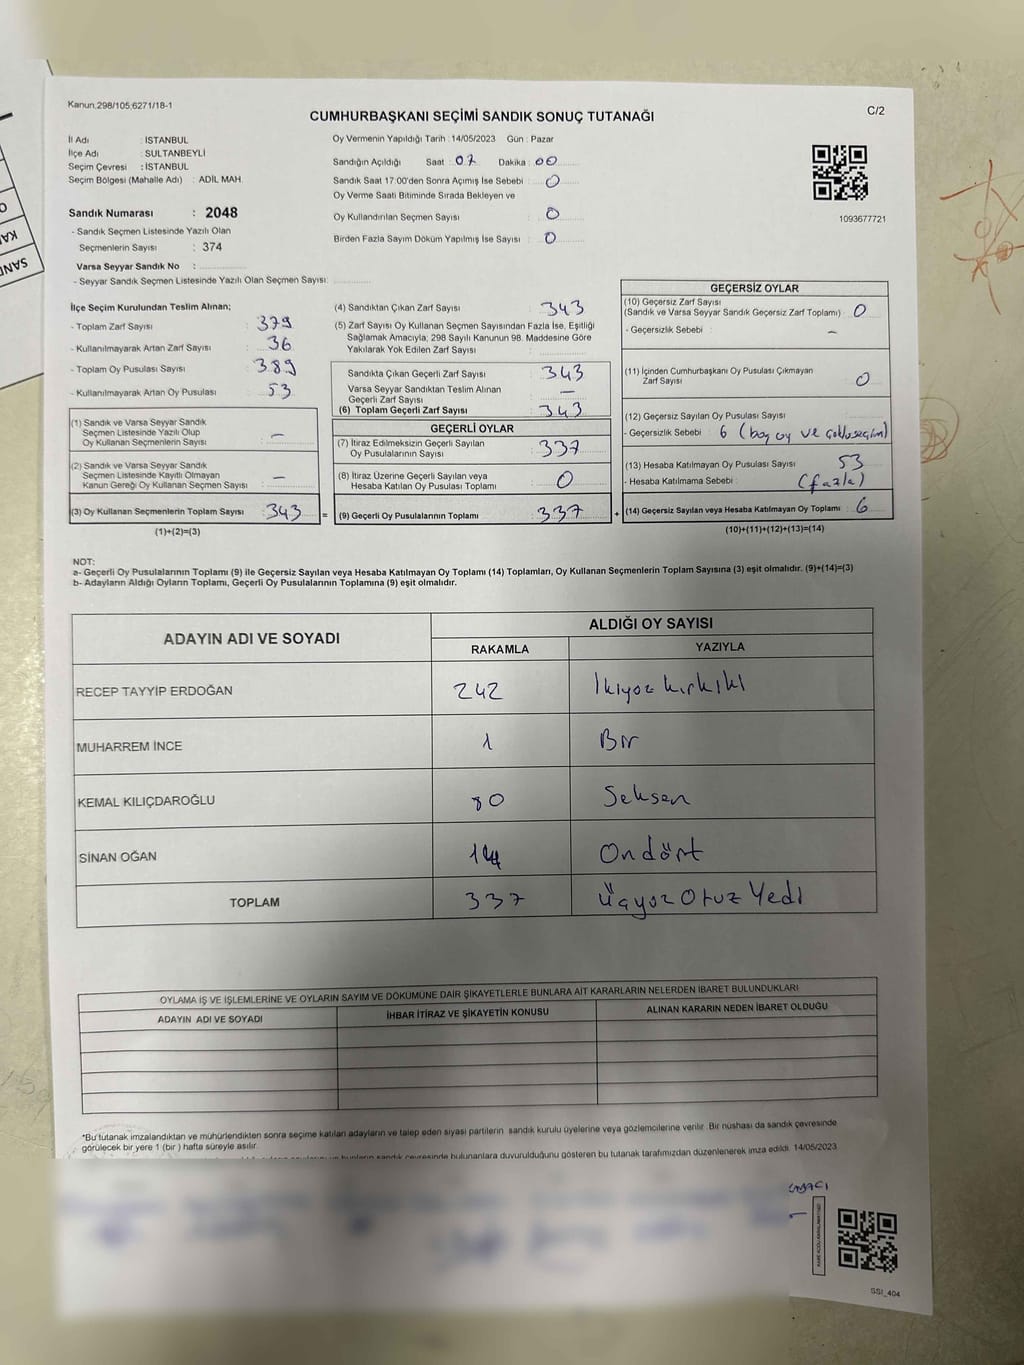 Kanun:298/105,6271/18-1
C/2
CUMHURBAŞKANI SEÇİMİ SANDIK SONUÇ TUTANAĞI
İl Adı : İSTANBUL
İlçe Adı : SULTANBEYLİ
Seçim Çevresi : İSTANBUL
Seçim Bölgesi (Mahalle Adı) : ADİL MAH.
Sandık Numarası : 2048
- Sandık Seçmen Listesinde Yazılı Olan
Seçmenlerin Sayısı : 374
Varsa Seyyar Sandık No :
- Seyyar Sandık Seçmen Listesinde Yazılı Olan Seçmen Sayısı:
Oy Vermenin Yapıldığı Tarih : 14/05/2023 Gün : Pazar
Sandığın Açıldığı Saat : 07 Dakika : 00
Sandık Saat 17:00'den Sonra Açımış İse Sebebi : 0
Oy Verme Saati Bitiminde Sırada Bekleyen ve
Oy Kullandırılan Seçmen Sayısı : 0
Birden Fazla Sayım Döküm Yapılmış İse Sayısı : 0
1093677721
İlçe Seçim Kurulundan Teslim Alınan;
- Toplam Zarf Sayısı : 379
- Kullanılmayarak Artan Zarf Sayısı : 36
- Toplam Oy Pusulası Sayısı : 389
- Kullanılmayarak Artan Oy Pusulası : 53
(1) Sandık ve Varsa Seyyar Sandık
Seçmen Listesinde Yazılı Olup
Oy Kullanan Seçmenlerin Sayısı : —
(2) Sandık ve Varsa Seyyar Sandık
Seçmen Listesinde Kayıtlı Olmayan
Kanun Gereği Oy Kullanan Seçmen Sayısı : —
(3) Oy Kullanan Seçmenlerin Toplam Sayısı : 343 =
(1)+(2)=(3)
(4) Sandıktan Çıkan Zarf Sayısı : 343
(5) Zarf Sayısı Oy Kullanan Seçmen Sayısından Fazla İse, Eşitliği
Sağlamak Amacıyla; 298 Sayılı Kanunun 98. Maddesine Göre
Yakılarak Yok Edilen Zarf Sayısı :
Sandıkta Çıkan Geçerli Zarf Sayısı : 343
Varsa Seyyar Sandıktan Teslim Alınan
Geçerli Zarf Sayısı : —
(6) Toplam Geçerli Zarf Sayısı : 343
GEÇERLİ OYLAR
(7) İtiraz Edilmeksizin Geçerli Sayılan
Oy Pusulalarının Sayısı : 337
(8) İtiraz Üzerine Geçerli Sayılan veya
Hesaba Katılan Oy Pusulası Toplamı : 0
(9) Geçerli Oy Pusulalarının Toplamı : 337 +
GEÇERSİZ OYLAR
(10) Geçersiz Zarf Sayısı
(Sandık ve Varsa Seyyar Sandık Geçersiz Zarf Toplamı) : 0
- Geçersizlik Sebebi : —
(11) İçinden Cumhurbaşkanı Oy Pusulası Çıkmayan
Zarf Sayısı : 0
(12) Geçersiz Sayılan Oy Pusulası Sayısı :
- Geçersizlik Sebebi : 6 (boş oy ve
(13) Hesaba Katılmayan Oy Pusulası Sayısı : 53
- Hesaba Katılmama Sebebi : (fazla)
(14) Geçersiz Sayılan veya Hesaba Katılmayan Oy Toplamı : 6
(10)+(11)+(12)+(13)=(14)
NOT:
a- Geçerli Oy Pusulalarının Toplamı (9) ile Geçersiz Sayılan veya Hesaba Katılmayan Oy Toplamı (14) Toplamları, Oy Kullanan Seçmenlerin Toplam Sayısına (3) eşit olmalıdır. (9)+(14)=(3)
b- Adayların Aldığı Oyların Toplamı, Geçerli Oy Pusulalarının Toplamına (9) eşit olmalıdır.
ADAYIN ADI VE SOYADI ALDIĞI OY SAYISI
RAKAMLA YAZIYLA
RECEP TAYYİP ERDOĞAN 242 İkiyüz kırkiki
MUHARREM İNCE 1 Bir
KEMAL KILIÇDAROĞLU 80 Seksen
SİNAN OĞAN 14 Ondört
TOPLAM 337 Üçyüz Otuz Yedi
OYLAMA İŞ VE İŞLEMLERİNE VE OYLARIN SAYIM VE DÖKÜMÜNE DAİR ŞİKAYETLERLE BUNLARA AİT KARARLARIN NELERDEN İBARET BULUNDUKLARI
ADAYIN ADI VE SOYADI İHBAR İTİRAZ VE ŞİKAYETİN KONUSU ALINAN KARARIN NEDEN İBARET OLDUĞU
*Bu tutanak imzalandıktan ve mühürlendikten sonra seçime katılan adayların ve talep eden siyasi partilerin sandık kurulu üyelerine veya gözlemcilerine verilir. Bir nüshası da sandık çevresinde
görülecek bir yere 1 (bir) hafta süreyle asılır.
bunların sandık çevresinde bulunanlara duyurulduğunu gösteren bu tutanak tarafımızdan düzenlenerek imza edildi. 14/05/2023
SSİ_404